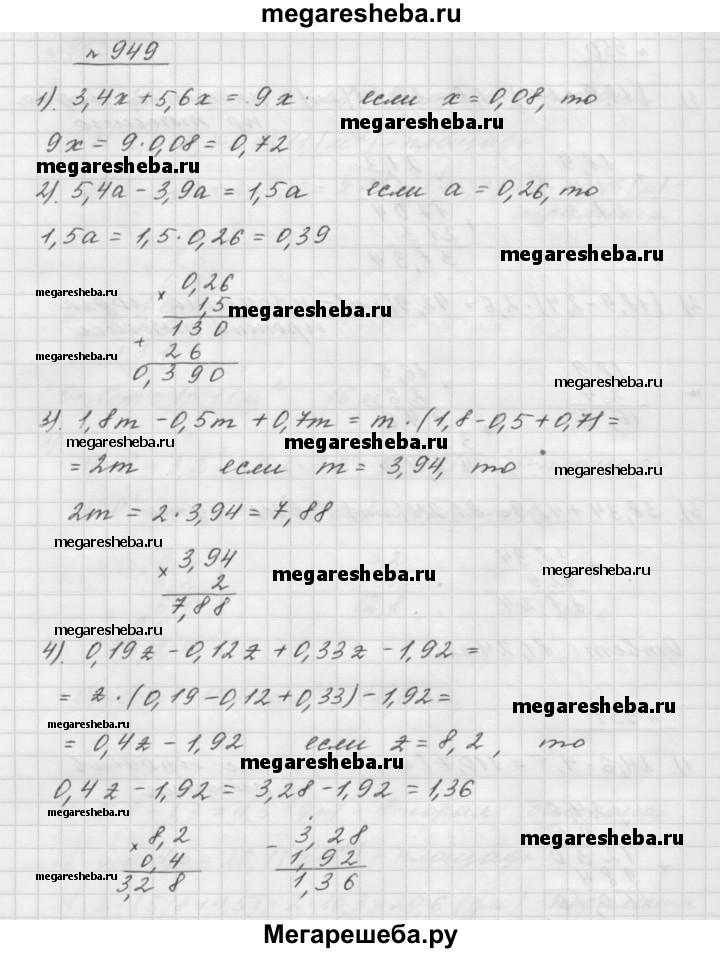 megaresheba.ru
№ 949
1). 3,4x + 5,6x = 9x. если x = 0,08, то
megaresheba.ru
9x = 9·0,08 = 0,72
megaresheba.ru
2). 5,4a - 3,9a = 1,5a если a = 0,26, то
1,5a = 1,5·0,26 = 0,39
megaresheba.ru
megaresheba.ru × 0,26
1,5 megaresheba.ru
130
megaresheba.ru + 26
0,390
megaresheba.ru
3). 1,8m - 0,5m + 0,7m = m·(1,8 - 0,5 + 0,7) =
megaresheba.ru megaresheba.ru
= 2m если m = 3,94, то megaresheba.ru
2m = 2·3,94 = 7,88
megaresheba.ru
× 3,94
2 megaresheba.ru megaresheba.ru
7,88
megaresheba.ru
4). 0,19z - 0,12z + 0,33z - 1,92 =
= z·(0,19 - 0,12 + 0,33) - 1,92 =
megaresheba.ru
megaresheba.ru
= 0,4z - 1,92 если z = 8,2, то
megaresheba.ru
0,4z - 1,92 = 3,28 - 1,92 = 1,36
megaresheba.ru
× 8,2 - 3,28
megaresheba.ru
0,4 1,92
megaresheba.ru
3,28 1,36
Мегарешеба.ру